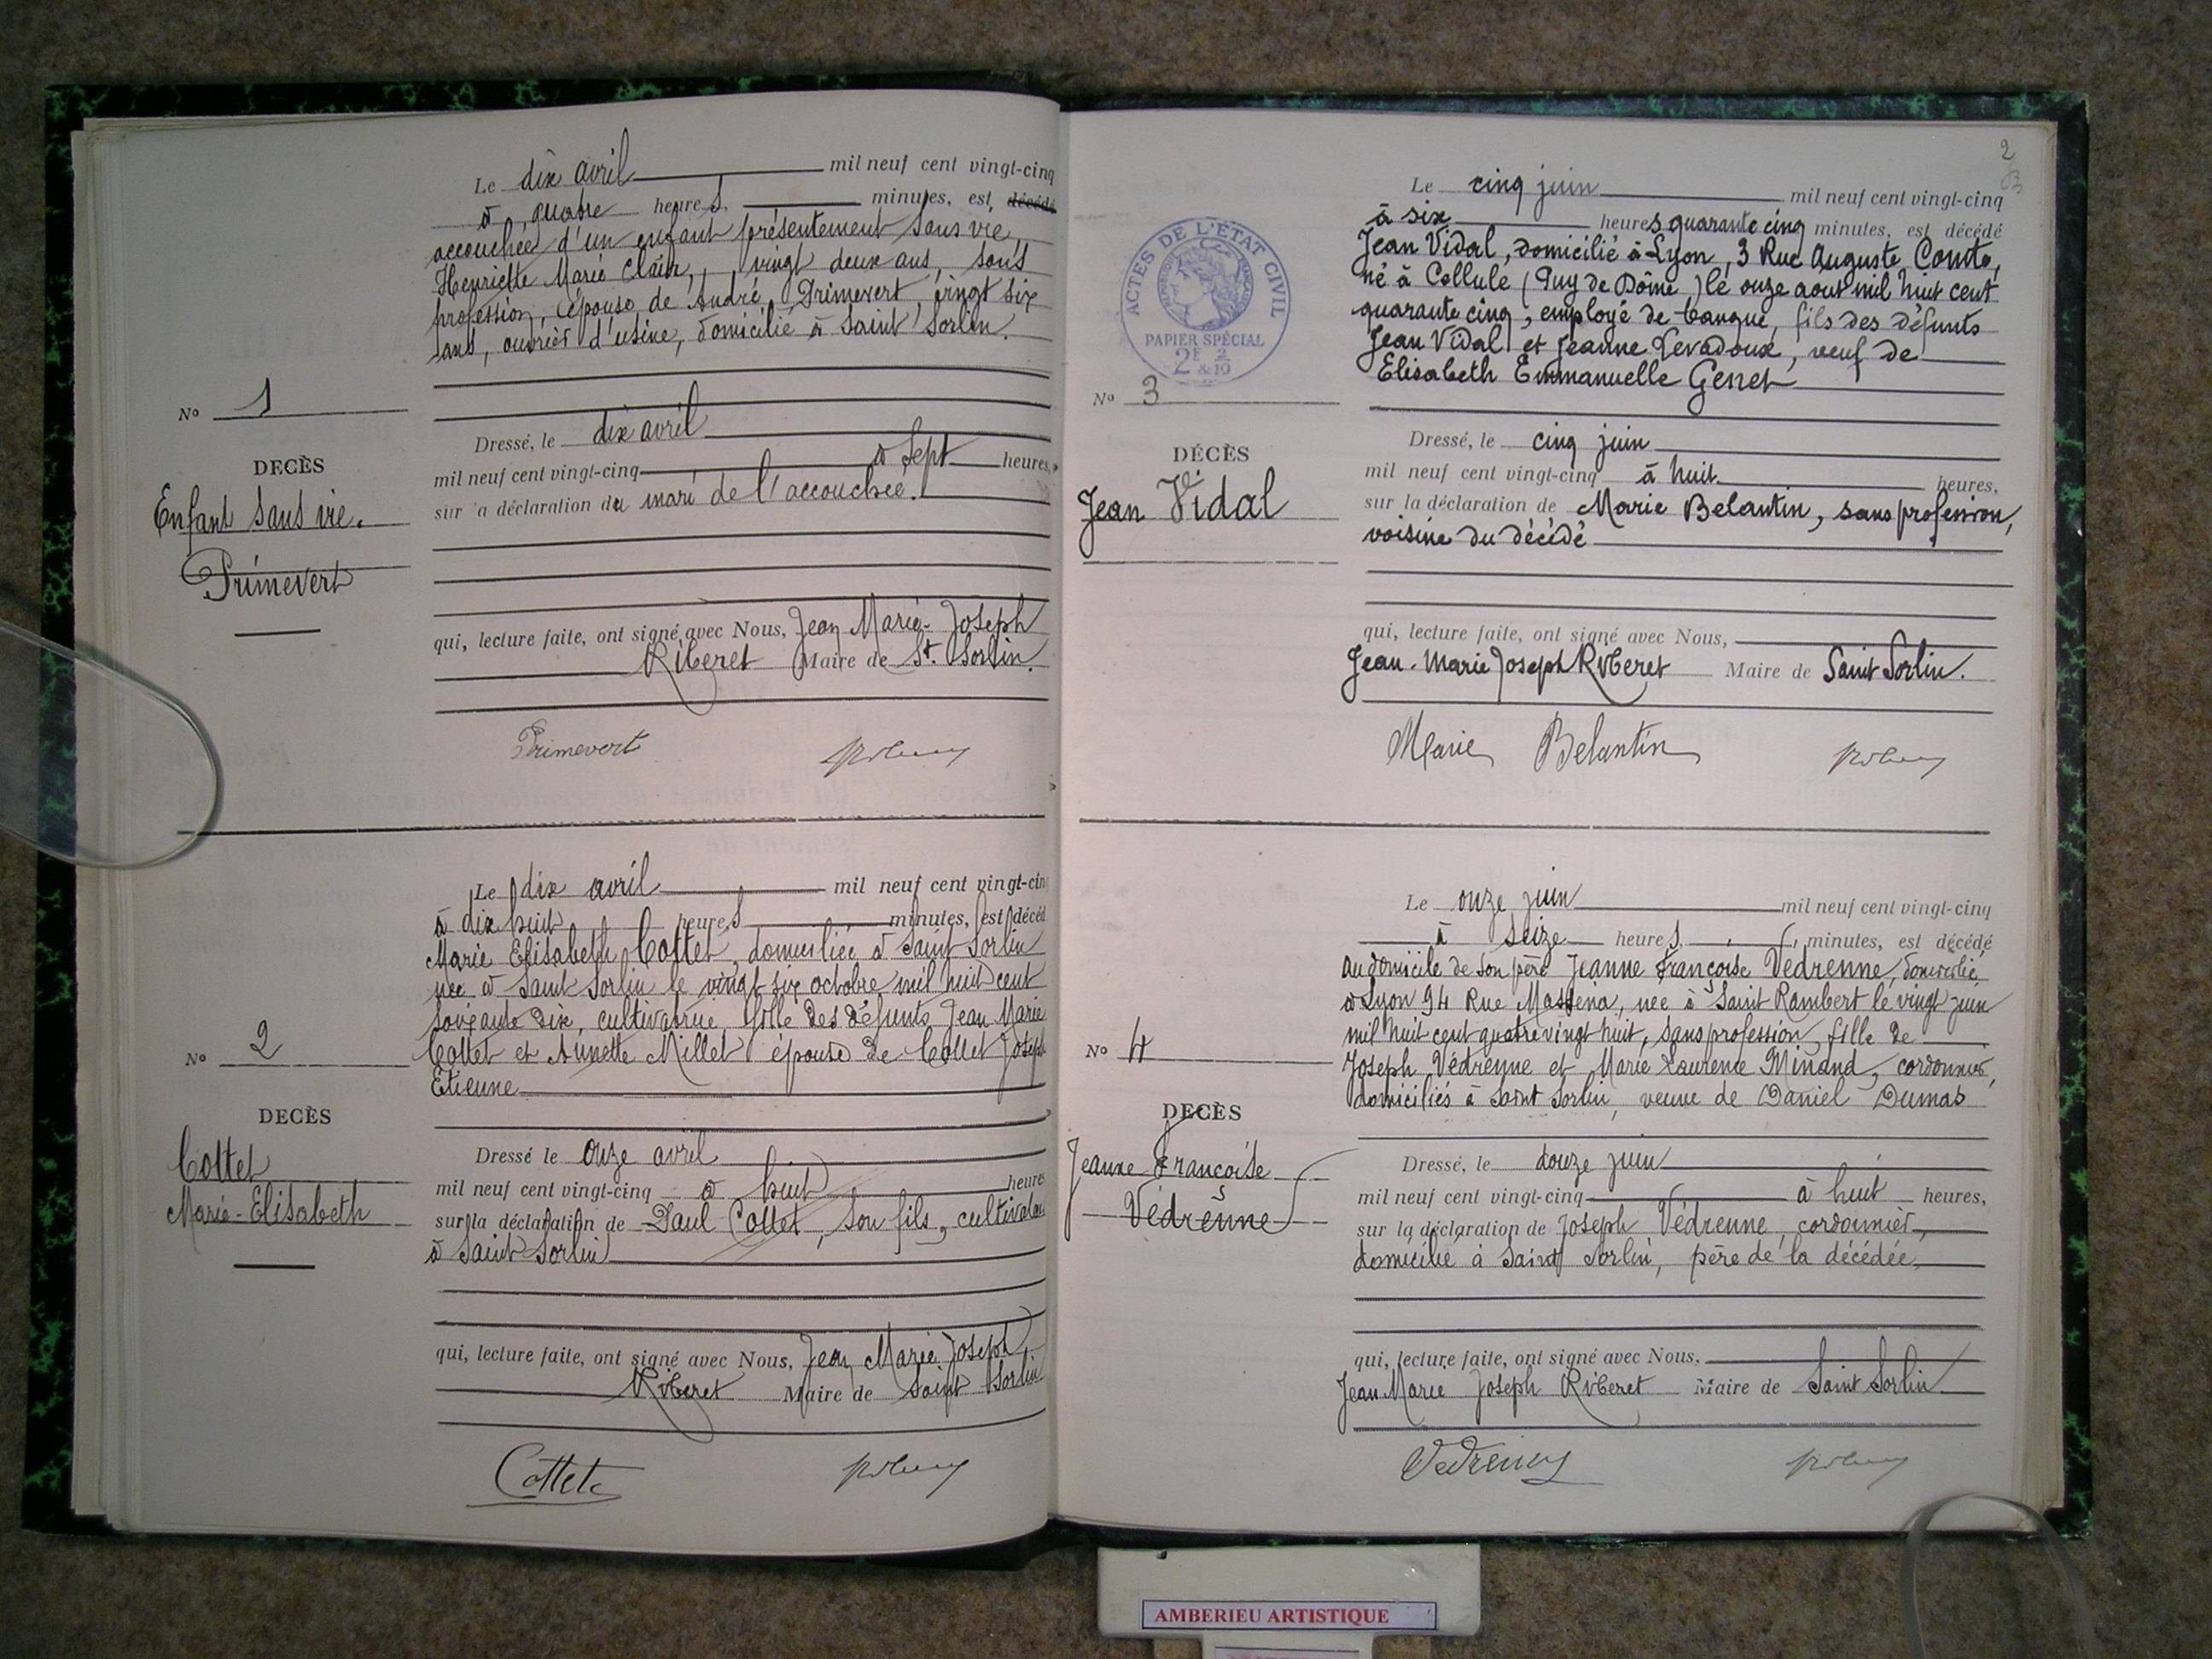 Le dix avril mil neuf cent vingt-cinq
à quatre heures, minutes, est décédé
accouchée d'un enfant présentement sans vie,
Henriette Marie Clair, vingt deux ans, sans
profession, épouse de André Primevert, vingt six
ans, ouvrier d'usine, domicilié à Saint Sorlin.
No 1
DECÈS
Enfant sans vie.
Primevert
Dressé, le dix avril
mil neuf cent vingt-cinq à sept heures,
sur la déclaration du mari de l'accouchée.
qui, lecture faite, ont signé avec Nous, Jean Marie-Joseph
Riberet Maire de St. Sorlin.
Primevert
Le dix avril mil neuf cent vingt-cin
à dix huit heures minutes, est décéd
Marie Elisabeth Cottet, domiciliée à Saint Sorlin
née à Saint Sorlin le vingt six octobre mil huit cent
soixante dix, cultivatrice, fille des défunts Jean Marie
Cottet et Annette Millet épouse de Cottet Joseph
Etienne
No 2
DECÈS
Cottet
Marie-Elisabeth
Dressé le onze avril
mil neuf cent vingt-cinq à huit heures
sur la déclaration de Paul Cottet, son fils, cultivateur
à Saint Sorlin
qui, lecture faite, ont signé avec Nous, Jean Marie Joseph
Riberet Maire de Saint Sorlin
Cottet
2
Le cinq juin mil neuf cent vingt-cinq
à six heures quarante cinq minutes, est décédé
Jean Vidal, domicilié à Lyon, 3 Rue Auguste Comte,
né à Cellule (Puy de Dôme) le onze aout mil huit cent
quarante cinq, employé de banque, fils des défunts
Jean Vidal et Jeanne Levadoux, veuf de
Elisabeth Emmanuelle Genet
ACTES DE L'ÉTAT CIVIL
PAPIER SPÉCIAL
2F & 2/10
No 3
DÉCÈS
Jean Vidal
Dressé, le cinq juin
mil neuf cent vingt-cinq à huit heures,
sur la déclaration de Marie Belantin, sans profession,
voisine du décédé
qui, lecture faite, ont signé avec Nous,
Jean-Marie Joseph Riberet Maire de Saint Sorlin.
Marie Belantin
Le onze juin mil neuf cent vingt-cinq
à seize heures, minutes, est décédé
au domicile de son père Jeanne Françoise Védrenne, domicilié
à Lyon 94 Rue Masséna, née à Saint Rambert le vingt juin
mil huit cent quatre vingt huit, sans profession, fille de
Joseph Védrenne et Marie Laurence Minand, cordonnier,
domiciliés à Saint Sorlin, veuve de Daniel Dumas
No 4
DECÈS
Jeanne Françoise
Védrenne
Dressé, le douze juin
mil neuf cent vingt-cinq à huit heures,
sur la déclaration de Joseph Védrenne, cordonnier,
domicilié à Saint Sorlin, père de la décédée,
qui, lecture faite, ont signé avec Nous,
Jean Marie Joseph Riberet Maire de Saint Sorlin
Vedrenne
AMBERIEU ARTISTIQUE